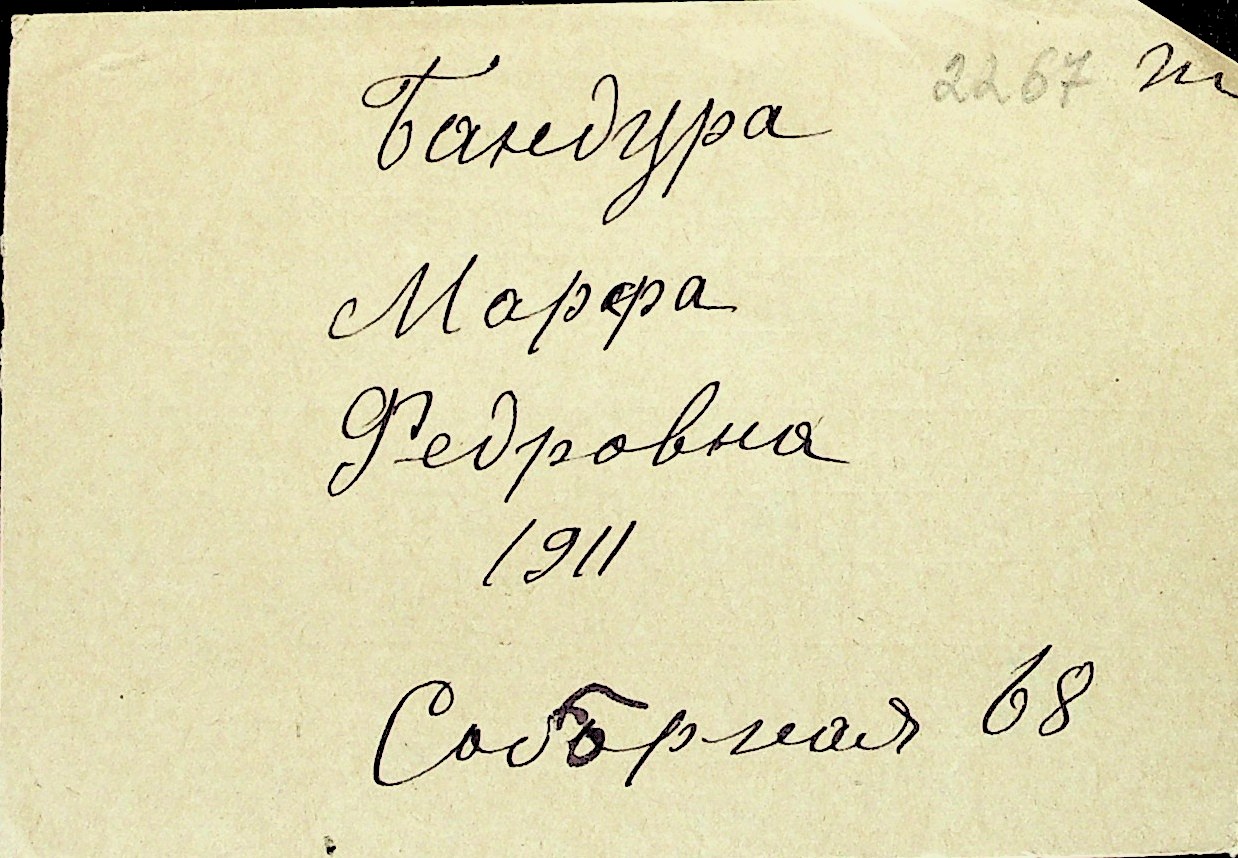 2267
Бандура
Марфа
Федровна
1911
Соборная 68